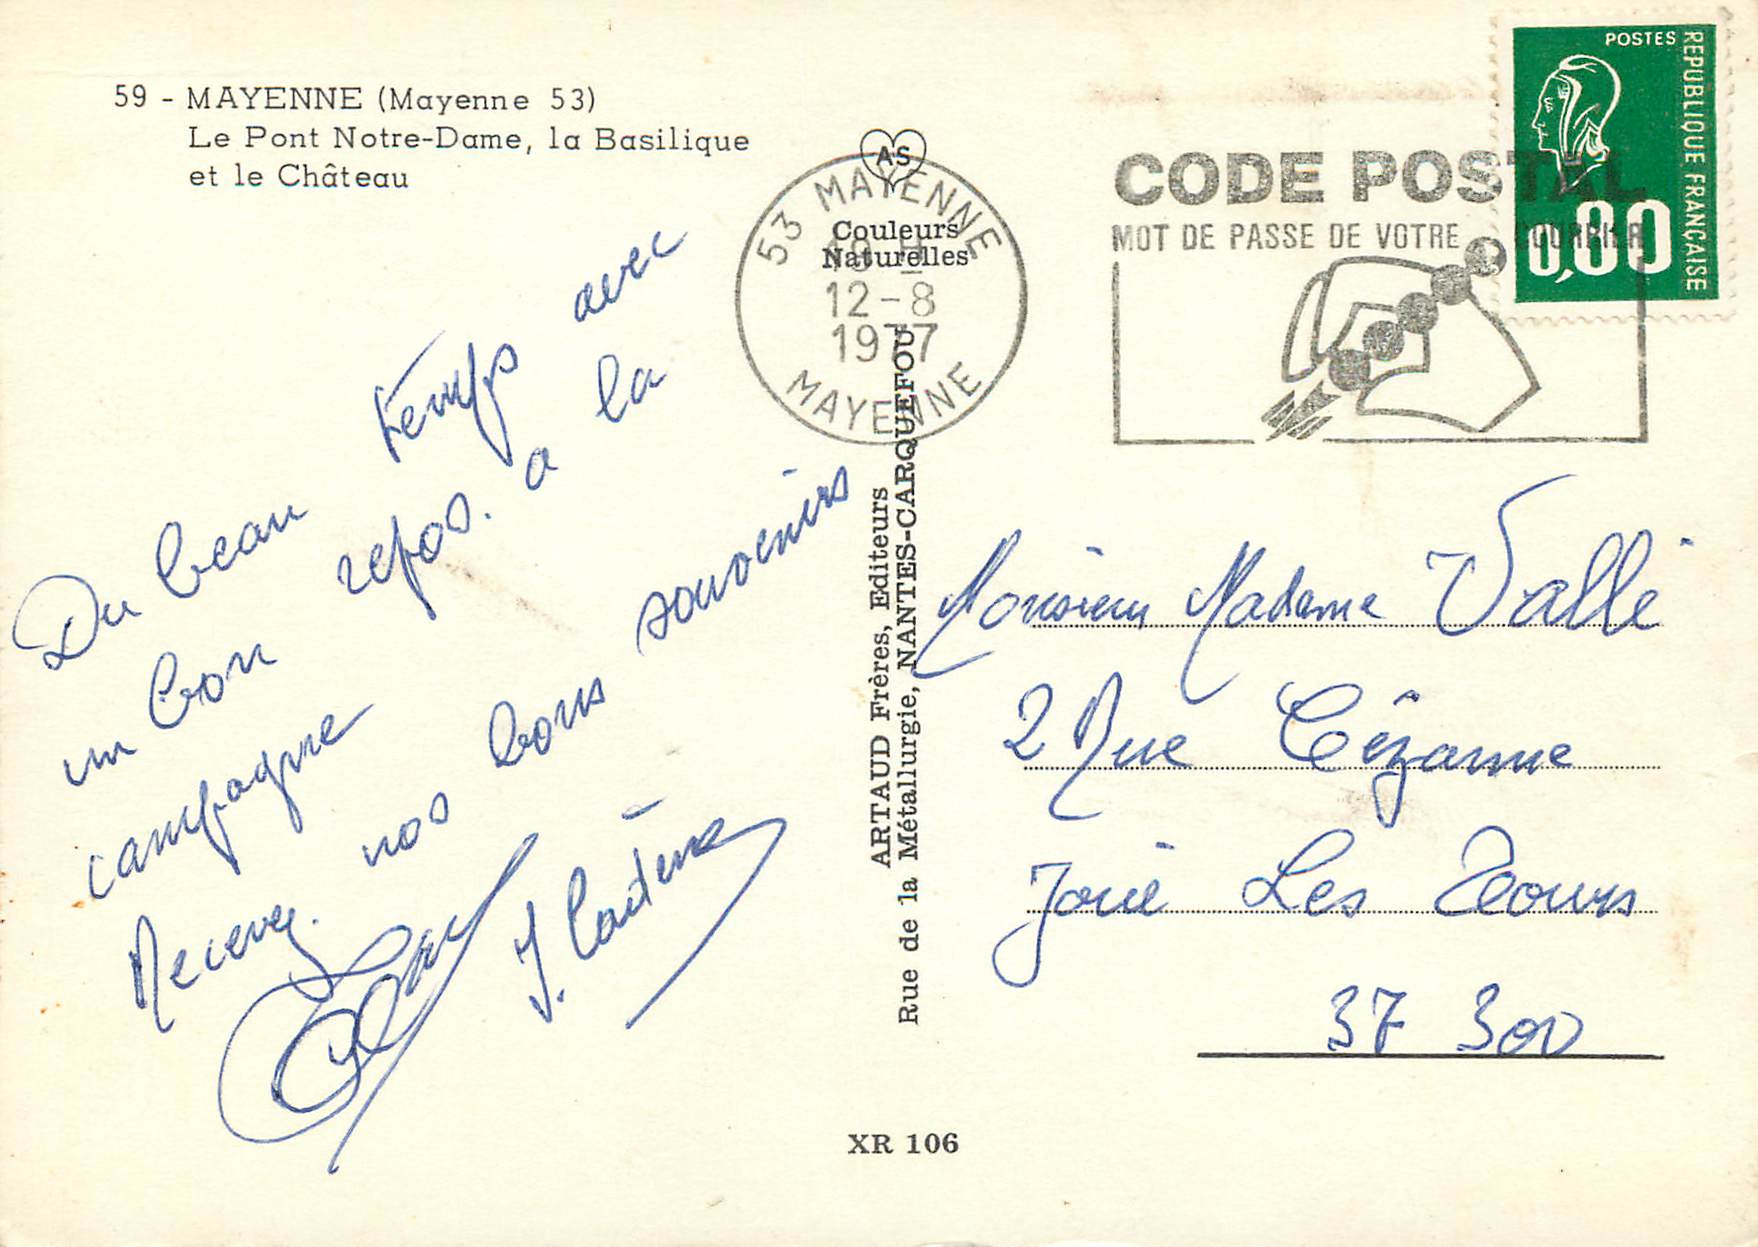 59 - MAYENNE (Mayenne 53)
Le Pont Notre-Dame, la Basilique
et le Château
AS
Couleurs
Naturelles
53 MAYENNE
12-8
1977
MAYENNE
CODE POSTAL
MOT DE PASSE DE VOTRE COURRIER
POSTES
REPUBLIQUE FRANÇAISE
0,80
Du beau temps avec
un bon repos. a la
campagne
Recevez. nos bons souvenirs
ARTAUD Frères, Editeurs
Rue de la Métallurgie, NANTES-CARQUEFOU
Monsieur Madame Vallé
2 Rue Cézanne
Joué Les Tours
37 300
XR 106